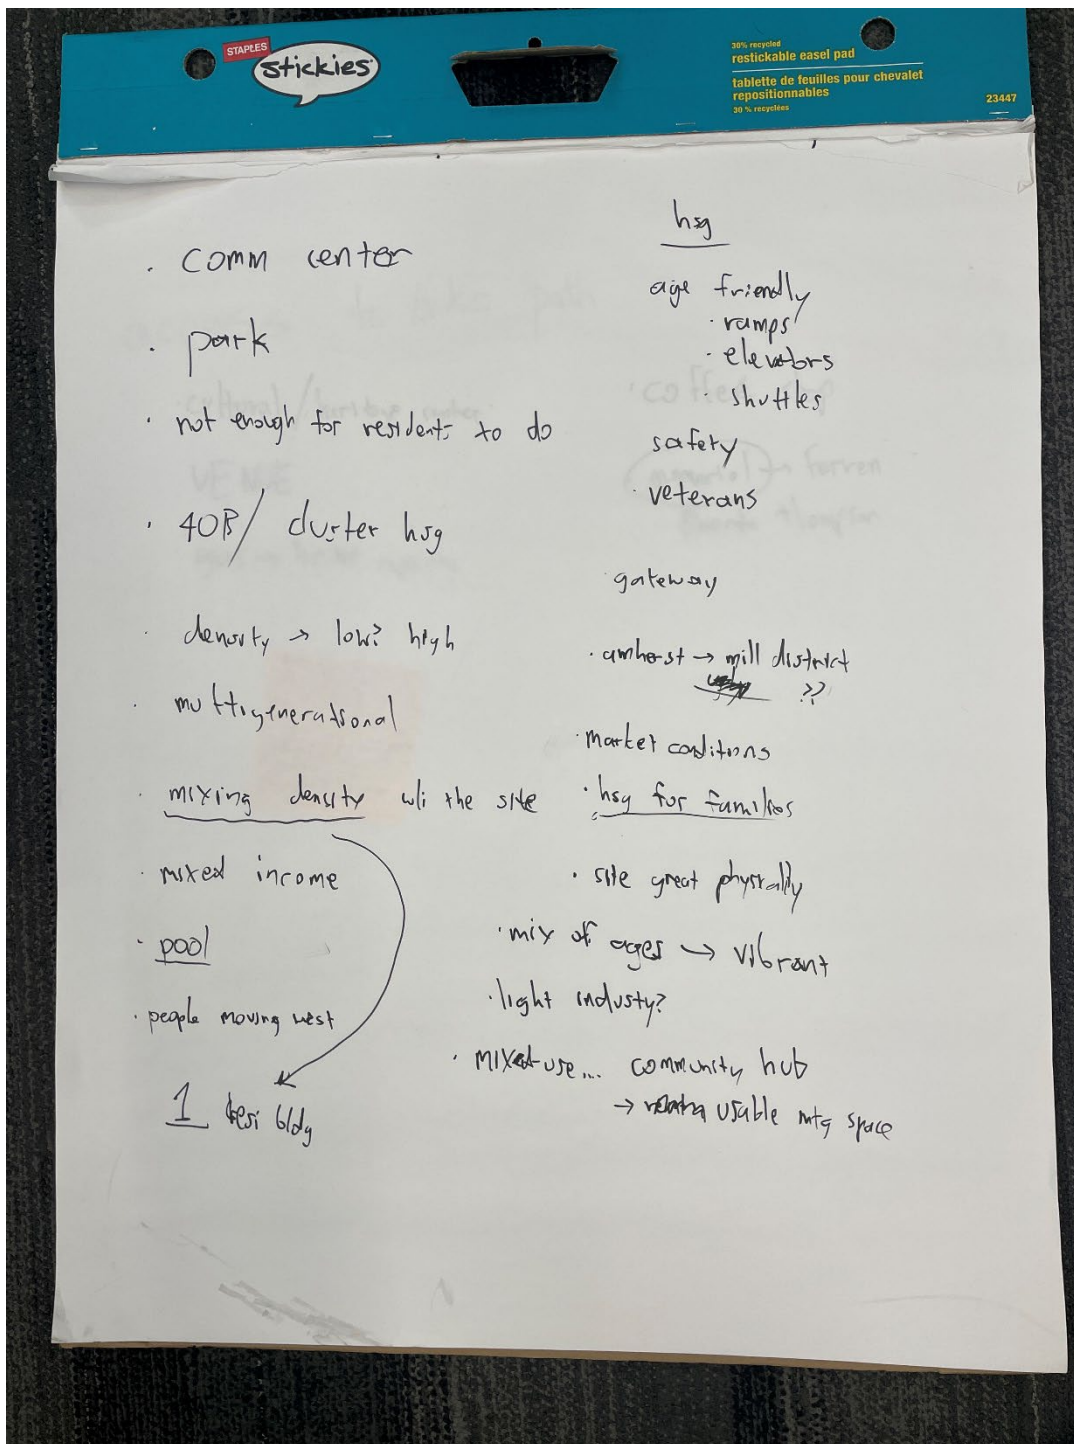 STAPLES
stickies
30% recycled
restickable easel pad
tablette de feuilles pour chevalet
repositionnables
30 % recyclées
23447
· comm center
· park
· not enough for residents to do
· 40B/ cluster hsg
· density → low? high
· multigenerational
· mixing density w/i the site
· mixed income
· pool
· people moving west
1 resi bldg
hsg
age friendly
· ramps
· elevators
· shuttles
safety
· veterans
· gateway
· amherst → mill district
??
· market conditions
· hsg for families
· site great physically
· mix of ages → vibrant
· light industy?
· mixed-use... community hub
→ usable mtg space